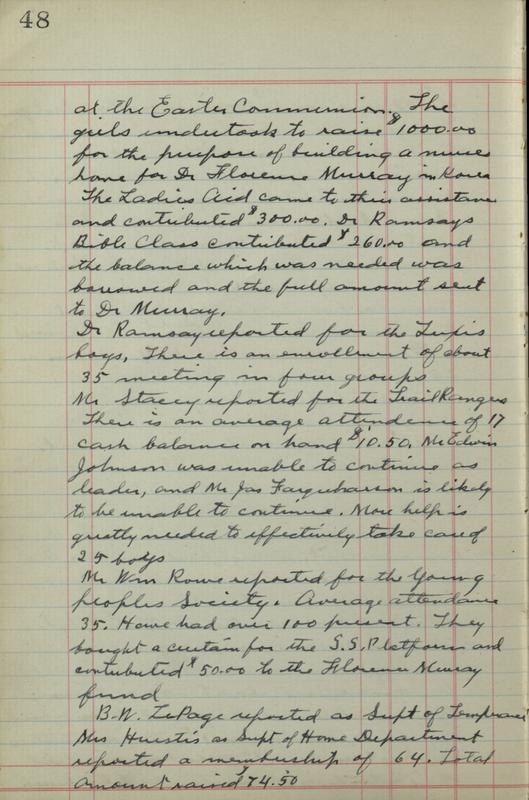 48
at the Easter Communion. The
girls undertook to raise $1000.00
for the purpose of building a nurses
home for Dr Florence Murray in Korea
The Ladies Aid came to their assistance
and contributed $300.00. Dr Ramsays
Bible Class contributed $260.00 and
the balance which was needed was
borrowed and the full amount sent
to Dr Murray.
Dr Ramsay reported for the Tuxis
boys, There is an enrollment of about
35 meeting in four groups
Mr Stacey reported for the Trail Rangers
There is an average attendence of 17
cash balance on hand $10.50. Mr Edwin
Johnson was unable to continue as
leader, and Mr Jas Farquharson is likely
to be unable to continue. More help is
greatly needed to effectively take care of
25 boys
Mr Wm Rowe reported for the Young
peoples Society. Average attendance
35. Have had over 100 present. They
bought a curtain for the S.S. Platform and
contributed $50.00 to the Florence Murray
fund
B.W. LePage reported as Supt of Temperance
Mrs Huestis as Supt of Home Department
reported a membership of 64. Total
amount raised $74.50